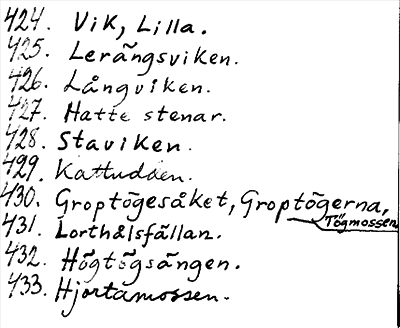 424. Vik, Lilla.
425. Lerängsviken.
426. Långviken.
427. Hatte stenar.
428. Staviken.
429. Kattudden.
430. Groptögesåket, Groptögerna,
Tögmossen
431. Lorthålsfällan.
432. Högtögsängen.
433. Hjortamossen.